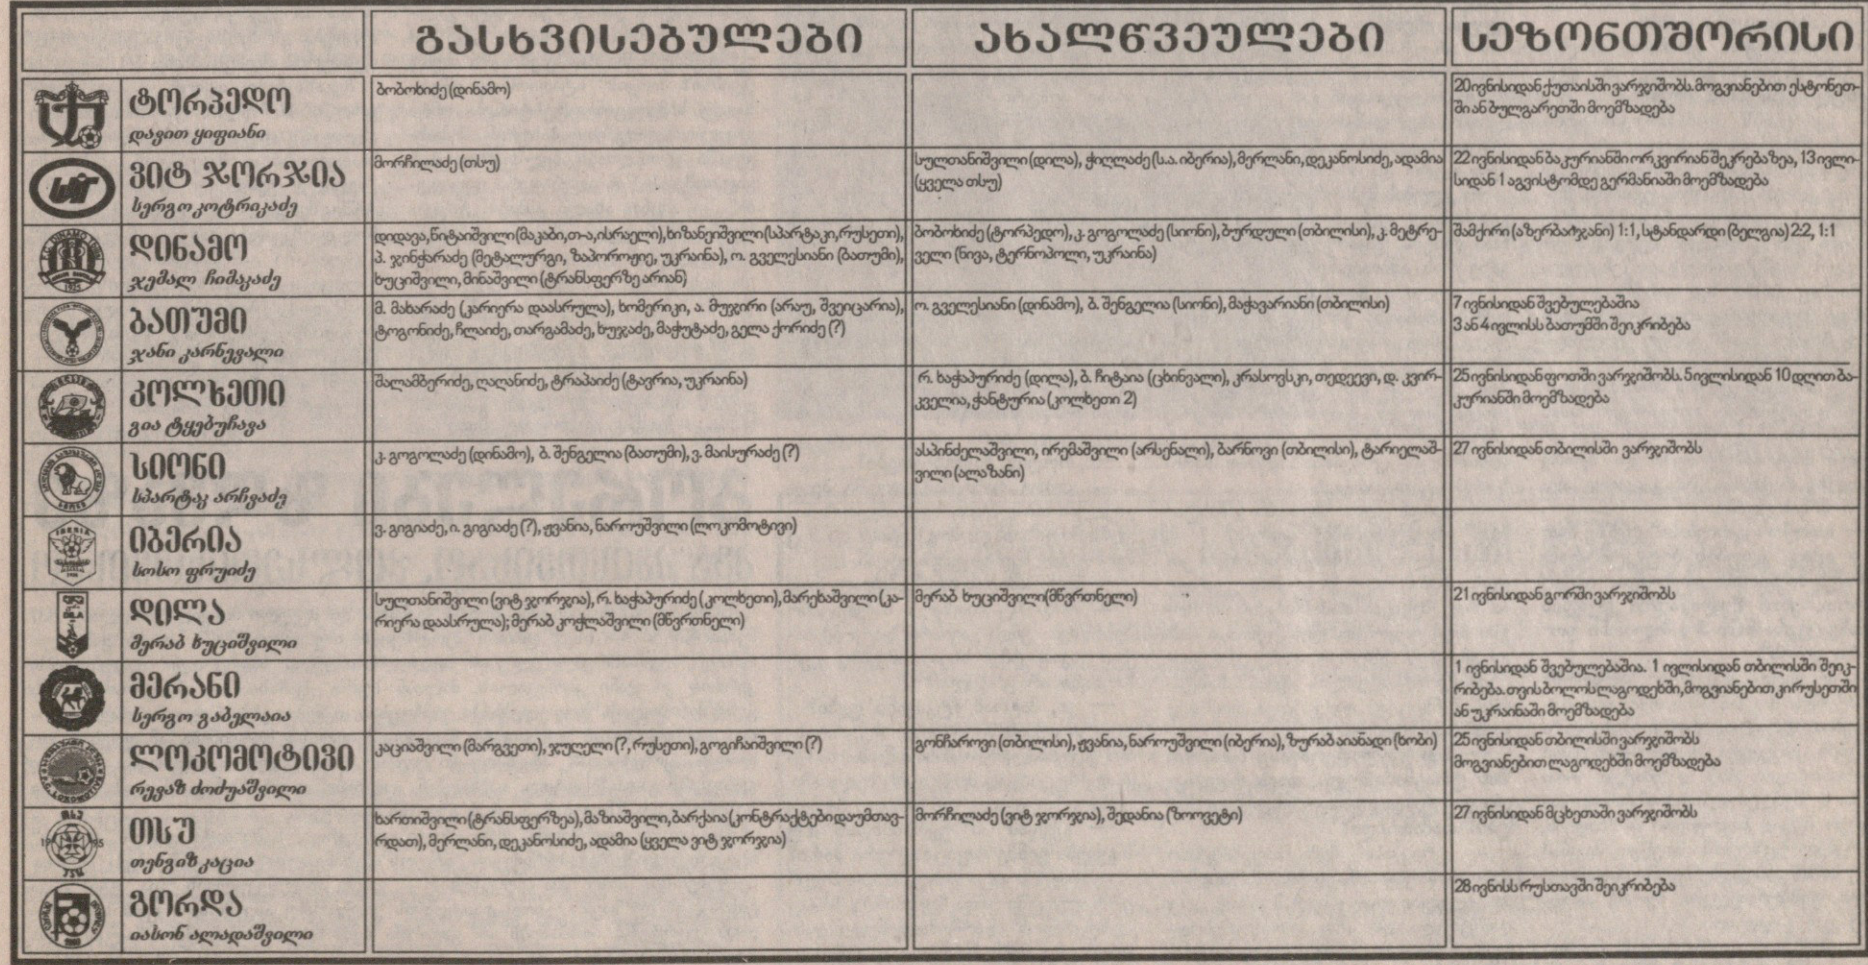 გასხვისებულები
ახალწვეულები
სეზონთშორისი
ტორპედო
დავით ყიფიანი
ბობოხიძე (დინამო)
20 ივნისიდან ქუთაისში ვარჯიშობს. მოგვიანებით ესტონეთ-
ში ან ბულგარეთში მოემზადება
ვიტ ჯორჯია
სერგო კოტრიკაძე
მორჩილაძე (თსუ)
სულთანიშვილი (დილა), ჭიღლაძე (ს.ა. იბერია), მერლანი, დეკანოსიძე, ადამია
(ყველა თსუ)
22 ივნისიდან ბაკურიანში ორკვირიან შეკრებაზეა, 13 ივლი-
სიდან 1 აგვისტომდე გერმანიაში მოემზადება
დინამო
ჯემალ ჩიმაკაძე
დიდავა, წიტაიშვილი (მაკაბი, თ-ა, ისრაელი), ხიზანეიშვილი (სპარტაკი, რუსეთი),
პ. ჯინჭარაძე (მეტალურგი, ზაპოროჟიე, უკრაინა), ო. გველესიანი (ბათუმი),
ხუციშვილი, მინაშვილი (ტრანსფერზე არიან)
ბობოხიძე (ტორპედო), კ. გოგოლაძე (სიონი), ბურდული (თბილისი), კ. მეტრე-
ველი (ნივა, ტერნოპოლი, უკრაინა)
შამქირი (აზერბაიჯანი) 1:1, სტანდარდი (ბელგია) 2:2, 1:1
ბათუმი
ჯანი კარნევალი
მ. მახარაძე (კარიერა დაასრულა), ხომერიკი, ა. მუჯირი (არაუ, შვეიცარია),
ტოგონიძე, ჩლაიძე, თარგამაძე, ხუჯაძე, მაჭუტაძე, გელა ქორიძე (?)
ო. გველესიანი (დინამო), ბ. შენგელია (სიონი), მაჭავარიანი (თბილისი)
7 ივნისიდან შვებულებაშია
3 ან 4 ივლისს ბათუმში შეიკრიბება
კოლხეთი
გია ტყებუჩავა
შალამბერიძე, ღაღანიძე, ტრაპაიძე (ტავრია, უკრაინა)
რ. ხაჭაპურიძე (დილა), ბ. ჩიტაია (ცხინვალი), კრასოვსკი, თედეევი, დ. კვირ-
კველია, ჭანტურია (კოლხეთი 2)
25 ივნისიდან ფოთში ვარჯიშობს. 5 ივლისიდან 10 დღით ბა-
კურიანში მოემზადება
სიონი
სპარტაკ არჩვაძე
კ. გოგოლაძე (დინამო), ბ. შენგელია (ბათუმი), ვ. მაისურაძე (?)
ასპინძელაშვილი, ირემაშვილი (არსენალი), ბარნოვი (თბილისი), ტარიელაშ-
ვილი (ალაზანი)
27 ივნისიდან თბილისში ვარჯიშობს
იბერია
სოსო ფრუიძე
ვ. გიგიაძე, ი. გიგიაძე (?), ჟვანია, ნაროუშვილი (ლოკომოტივი)
დილა
მერაბ ხუციშვილი
სულთანიშვილი (ვიტ ჯორჯია), რ. ხაჭაპურიძე (კოლხეთი), მარეხაშვილი (კა-
რიერა დაასრულა); მერაბ კოჭლაშვილი (მწვრთნელი)
მერაბ ხუციშვილი (მწვრთნელი)
21 ივნისიდან გორში ვარჯიშობს
მერანი
სერგო გაბელაია
1 ივნისიდან შვებულებაშია. 1 ივლისიდან თბილისში შეიკ-
რიბება. თვის ბოლოს ლაგოდეხში, მოგვიანებით კი რუსეთში
ან უკრაინაში მოემზადება
ლოკომოტივი
რევაზ ძოძუაშვილი
კაციაშვილი (მარგვეთი), ჯუღელი (?, რუსეთი), გოგიჩაიშვილი (?)
გონჩაროვი (თბილისი), ჟვანია, ნაროუშვილი (იბერია), ზურაბ აიანადი (ხობი)
25 ივნისიდან თბილისში ვარჯიშობს
მოგვიანებით ლაგოდეხში მოემზადება
თსუ
თენგიზ კაცია
ხართიშვილი (ტრანსფერზეა), მაზიაშვილი, ბარქაია (კონტრაქტები დაუმთავ-
რდათ), მერლანი, დეკანოსიძე, ადამია (ყველა ვიტ ჯორჯია)
მორჩილაძე (ვიტ ჯორჯია), შედანია (ზოოვეტი)
27 ივნისიდან მცხეთაში ვარჯიშობს
გორდა
იასონ ალადაშვილი
28 ივნისს რუსთავში შეიკრიბება